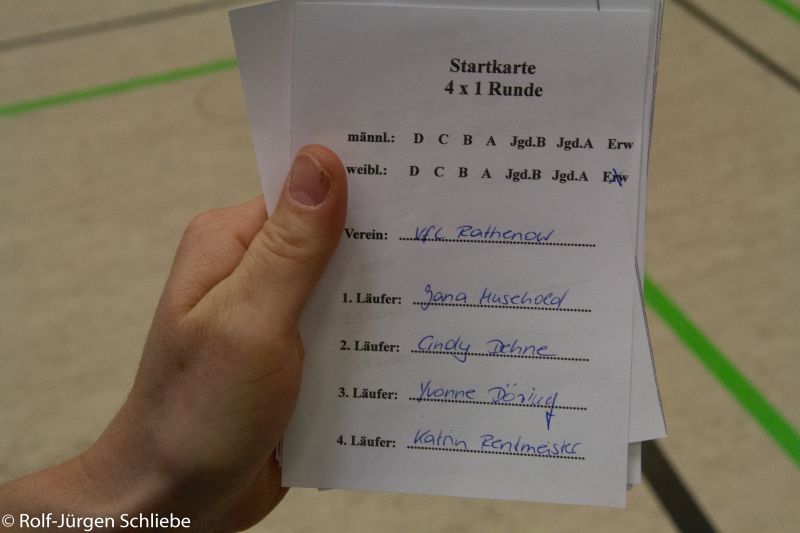 Startkarte
4 x 1 Runde
männl.: D C B A Jgd.B Jgd.A Erw
weibl.: D C B A Jgd.B Jgd.A Erw
Verein: VfL Rathenow
1. Läufer: Jana Musehold
2. Läufer: Cindy Dehne
3. Läufer: Yvonne Döring
4. Läufer: Katrin Rentmeister
© Rolf-Jürgen Schliebe